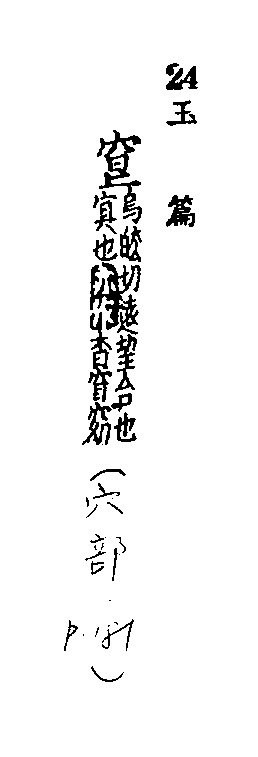 24 玉 篇
烏皎切遠望合也
冥也 杳窅窈
(穴部
p.181)